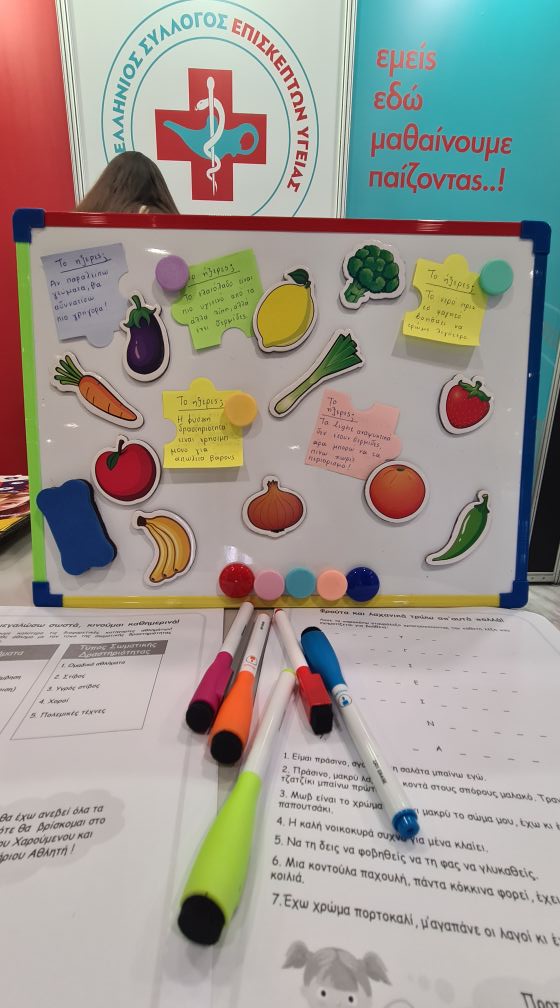 ΕΛΛΗΝΙΟΣ ΣΥΛΛΟΓΟΣ ΕΠΙΣΚΕΠΤΩΝ ΥΓΕΙΑΣ
εμείς
εδώ
μαθαίνουμε
παίζοντας..!
Το ήξερες;
Αν παραλείπω
γεύματα, θα
αδυνατίσω
πιο γρήγορα!
Το ήξερες;
Το ελαιόλαδο είναι
πιο υγιεινό από τα
άλλα λίπη, αλλά
έχει θερμίδες.
Το ήξερες;
Το νερό πριν
το φαγητό
βοηθάει να
Το ήξερες;
Η φυσική
δραστηριότητα
είναι χρήσιμη
μόνο για
απώλεια βάρους
Το
ήξερες;
Τα light αναψυκτικά
δεν έχουν θερμίδες
άρα μπορώ να τα
πίνω χωρίς
περιορισμό!
εγαλώσω σωστά, κινούμαι καθημερινά!
Τύπος Σωματικής
Δραστηριότητας
1. Ομαδικά αθλήματα
2. Στίβος
3. Υγρός στίβος
4. Χοροί
5. Πολεμικές τέχνες
θα έχω ανεβεί όλα τα
ότε θα βρίσκομαι στο
ου Χαρούμενου και
άριου Αθλητή!
Φρούτα και λαχανικά τρώω απ'αυτά πολλά!
Υ
Γ
Ι
Ε
Ι
Ν
Α
1. Είμαι πράσινο, σγο σαλάτα μπαίνω εγώ.
2. Πράσινο, μακρύ λα κοντά στους σπόρους μαλακό.
τζατζίκι μπαίνω πρώτ
3. Μωβ είναι το χρώμα μακρύ το σώμα μου, έχω κι έ
παπουτσάκι.
4. Η καλή νοικοκυρά συχνά για μένα κλαίει.
5. Να τη δεις να φοβηθείς να τη φας να γλυκαθείς.
6. Μια κοντούλα παχουλή, πάντα κόκκινα φορεί, έχει
κοιλιά.
7. Έχω χρώμα πορτοκαλί, μ'αγαπάνε οι λαγοί κι έ